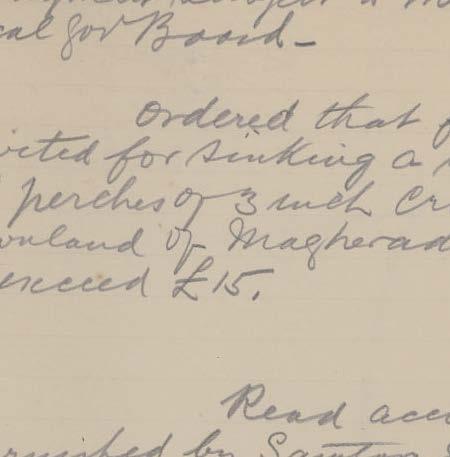 cal Gov Board -
Ordered that
vited for sinking a
perches of 3 inch Cr
ownland of Magherad
exceed £15.
Read acc
urnished by